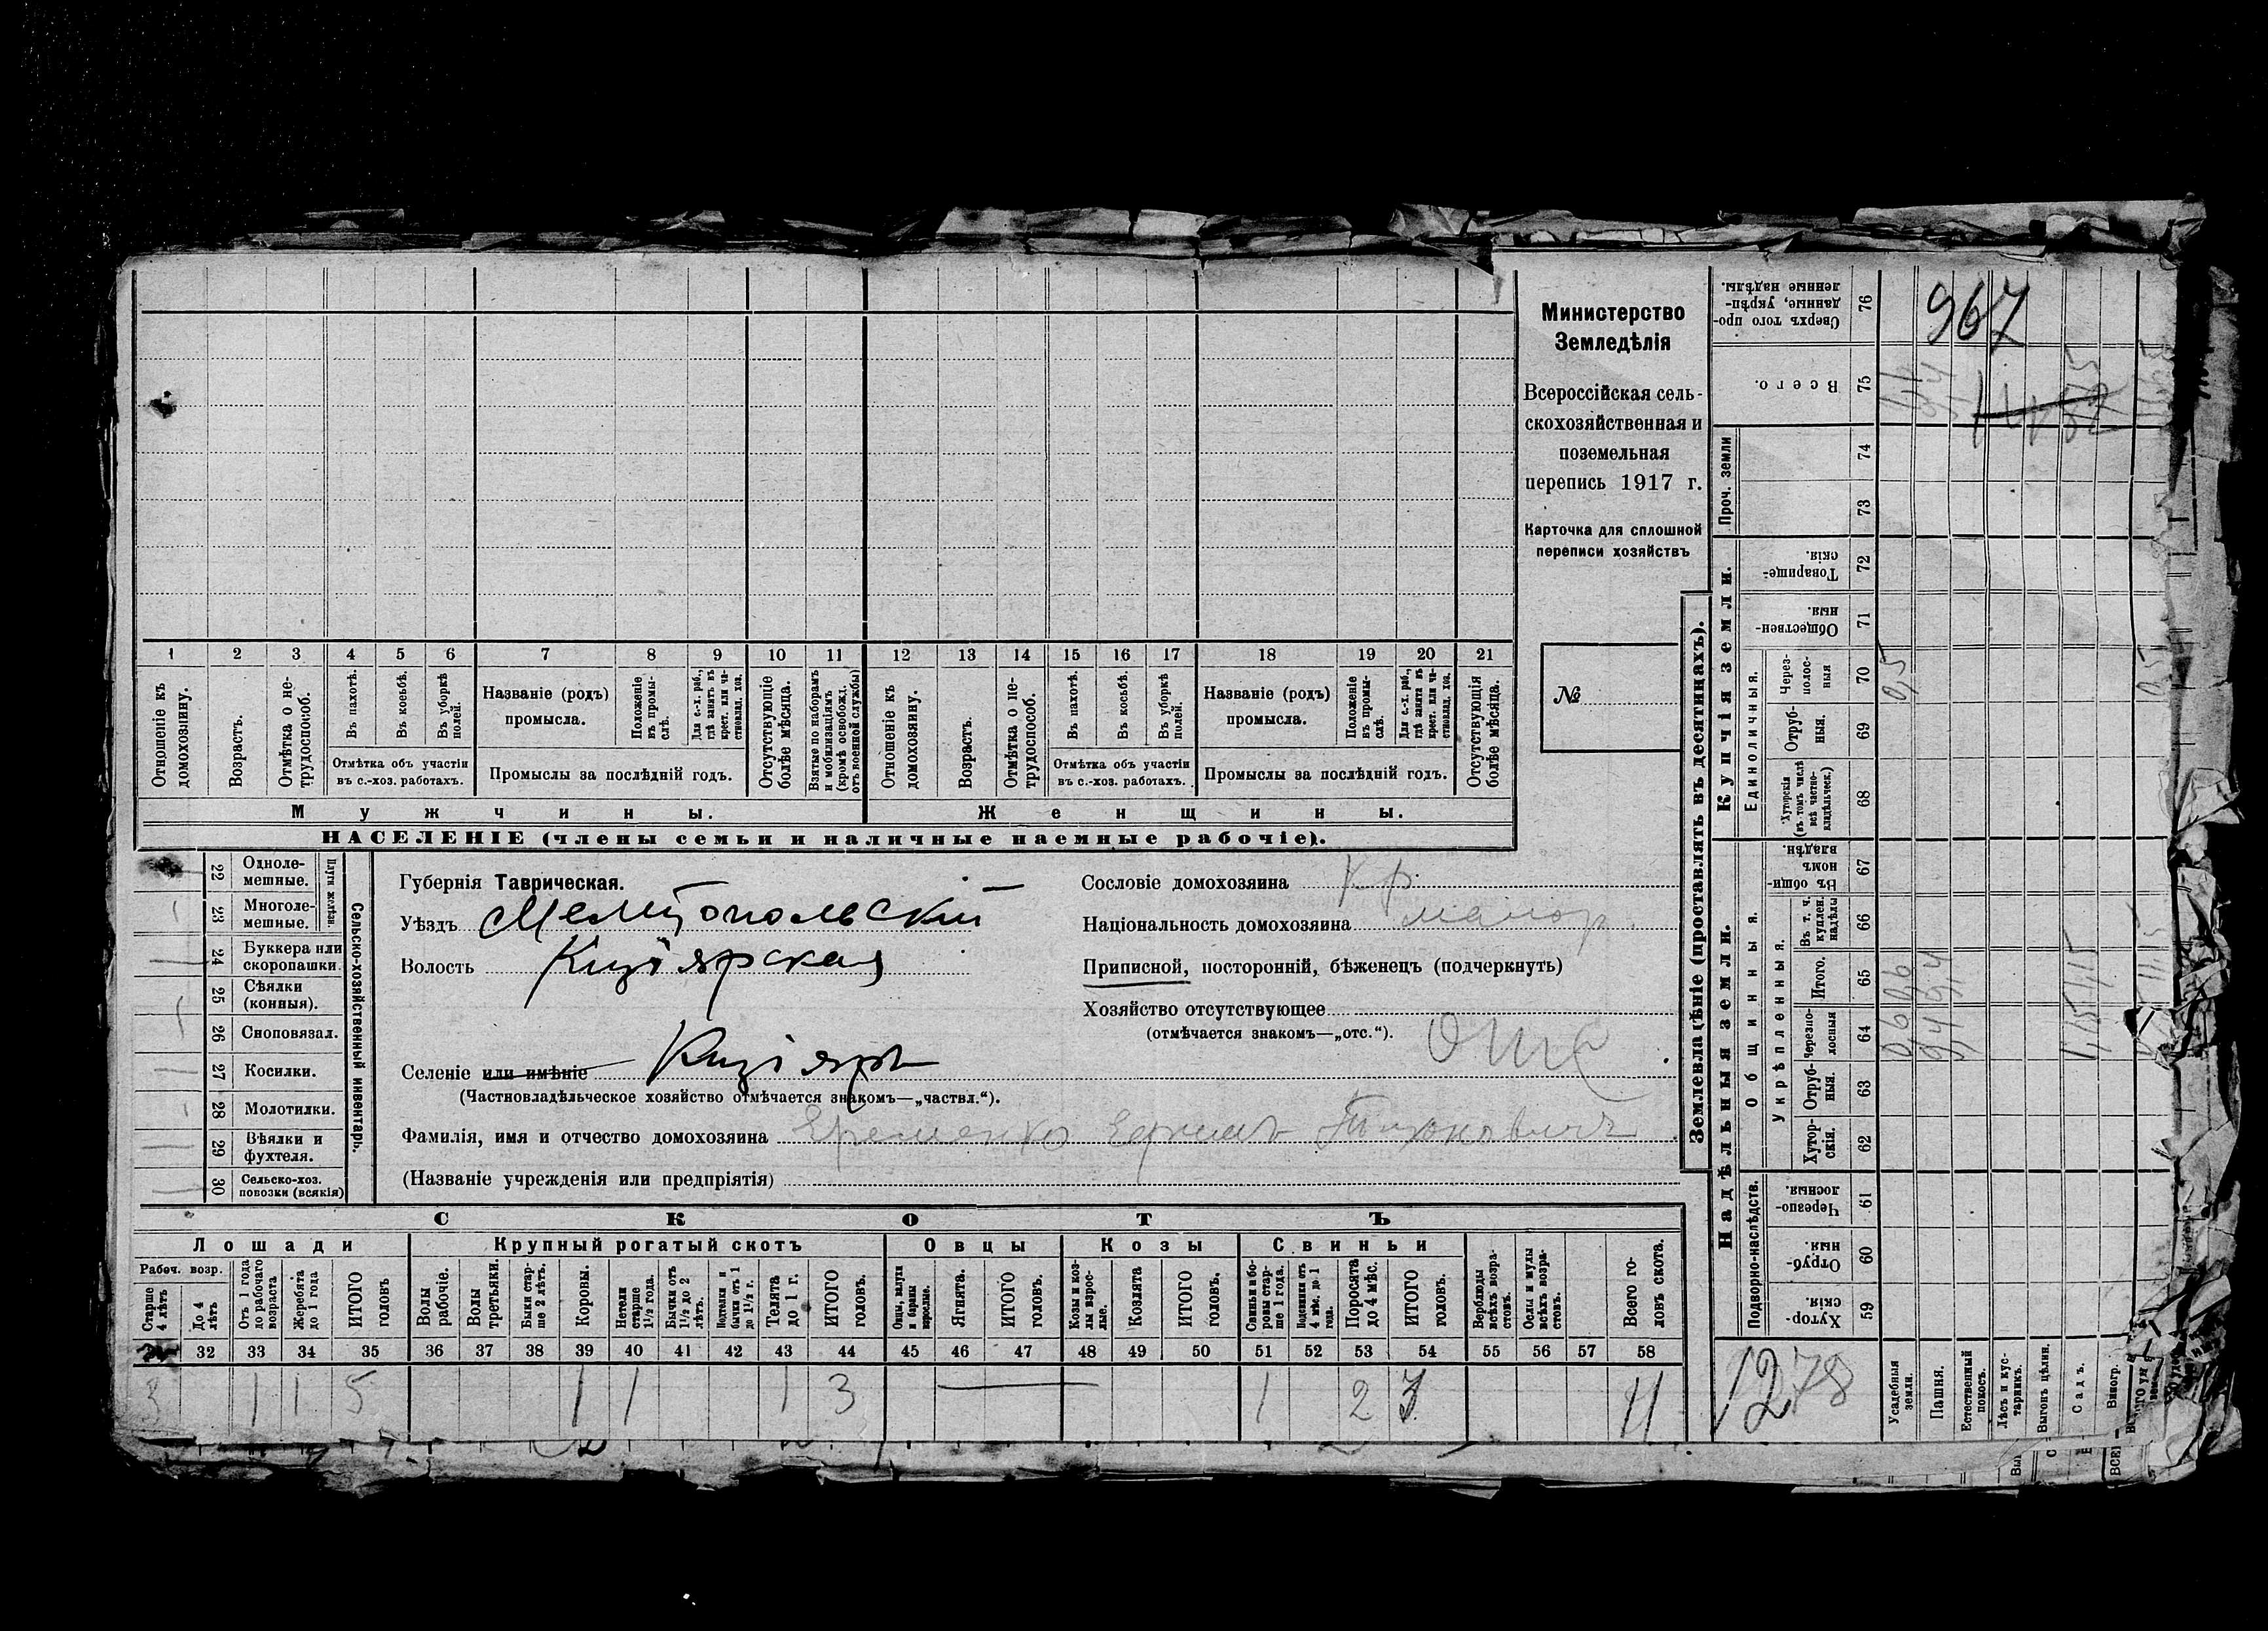 Министерство
Земледѣлія
Всероссійская сель-
скохозяйственная и
поземельная
перепись 1917 г.
Карточка для сплошной
переписи хозяйствъ
№
1 2 3 4 5 6 7 8 9 10 11 12 13 14 15 16 17 18 19 20 21
Отношеніе къ домохозяину.
Возрастъ.
Отмѣтка о не-трудоспособ.
Въ пахотѣ.
Въ косьбѣ.
Въ уборкѣ полей.
Отмѣтка объ участіи
въ с.-хоз. работахъ.
Названіе (родъ)
промысла.
Положеніе въ промы-слѣ.
Для с.-х. раб., гдѣ занятъ въ крест. или ча-стновлад. хоз.
Промыслы за послѣдній годъ.
Отсутствующіе болѣе мѣсяца.
Взятые по наборамъ и мобилизаціямъ (кромѣ освобожд. отъ военной службы)
Отношеніе къ домохозяину.
Возрастъ.
Отмѣтка о не-трудоспособ.
Въ пахотѣ.
Въ косьбѣ.
Въ уборкѣ полей.
Отмѣтка объ участіи
въ с.-хоз. работахъ.
Названіе (родъ)
промысла.
Положеніе въ промы-слѣ.
Для с.-х. раб., гдѣ занята въ крест. или ча-стновлад. хоз.
Промыслы за послѣдній годъ.
Отсутствующія болѣе мѣсяца.
Мужчины.
Женщины.
НАСЕЛЕНІЕ (члены семьи и наличные наемные рабочіе).
Сельско-хозяйственный инвентарь.
Плуги желѣзн.
22 Одноле-мешные.
23 Многоле-мешные.
24 Буккера или скоропашки.
25 Сѣялки (конныя).
26 Сноповязал.
27 Косилки.
28 Молотилки.
29 Вѣялки и фухтеля.
30 Сельско-хоз. повозки (всякія)
Губернія Таврическая.
Уѣздъ Мелитопольскій
Волость Кизіярская
Селеніе или имѣніе Кизіяръ
(Частновладѣльческое хозяйство отмѣчается знакомъ—„частвл.“).
Фамилія, имя и отчество домохозяина Еременко Тихоновичъ
(Названіе учрежденія или предпріятія)
Сословіе домохозяина кр.
Національность домохозяина малор.
Приписной, посторонній, бѣженецъ (подчеркнуть)
Хозяйство отсутствующее
(отмѣчается знакомъ—„отс.“).
СКОТЪ
Лошади
Крупный рогатый скотъ
Овцы
Козы
Свиньи
Рабоч. возр.
Старше 4 лѣтъ
До 4 лѣтъ
Отъ 1 года до рабочаго возраста
Жеребята до 1 года
ИТОГО головъ
Волы рабочіе.
Волы третьяки.
Быки стар-ше 2 лѣтъ.
Коровы.
Нетели старше 1½ года.
Бычки отъ 1½ до 2 лѣтъ.
Подтелки и бычки отъ 1 до 1½ г.
Телята до 1 г.
ИТОГО головъ.
Овцы, валухи и бараны взрослые.
Ягнята.
ИТОГО головъ.
Козы и коз-лы взрос-лые.
Козлята
ИТОГО головъ.
Свиньи и бо-ровы стар-ше 1 года.
Подсвинки отъ 4 мѣс. до 1 года.
Поросята до 4 мѣс.
ИТОГО головъ.
Верблюды всѣхъ возра-стовъ.
Ослы и мулы всѣхъ возра-стовъ.
Всего го-ловъ скота.
32 33 34 35 36 37 38 39 40 41 42 43 44 45 46 47 48 49 50 51 52 53 54 55 56 57 58
3 1 1 5 1 1 1 3 1 2 3 11
Землевладѣніе (проставлять въ десятинахъ).
Купчія земли.
Надѣльныя земли.
Сверхъ того про-данные, укрѣп-ленные надѣлы. 76
967
Всего. 75
Проч. земли 74 73
Товарище-скія. 72
Обществен-ныя. 71
Единоличныя.
Через-полос-ныя 70
0,5
Отруб-ныя. 69
Хуторскія (въ томъ числѣ всѣ частно-владѣльческ.) 68
Общинныя.
Въ общин-номъ владѣн. 67
Укрѣпленныя.
Въ т. ч. куплен. надѣлы 66
Итого. 65
Черезпо-лосныя 64
Отруб-ныя. 63
Хутор-скія. 62
Подворно-наслѣдств.
Черезпо-лосныя. 61
Отруб-ныя. 60
Хутор-скія 59
1278
Усадебныя земли.
Пашня.
Естественный покосъ.
Лѣсъ и кус-тарникъ.
Выгонъ цѣлин.
Садъ.
Виногр.